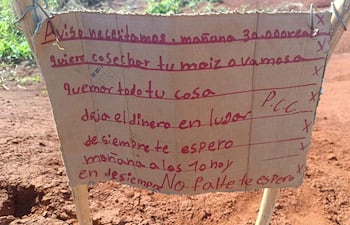 Aviso necesitamos. mañana 30.000 rea
quiere cosechar tu maiz o vamos a
quemar todo tu cosa
deja el dinero en lugar P.C.C
de siempre te espero
mañana a las 10 hoy
en de siempre NO falte te espero